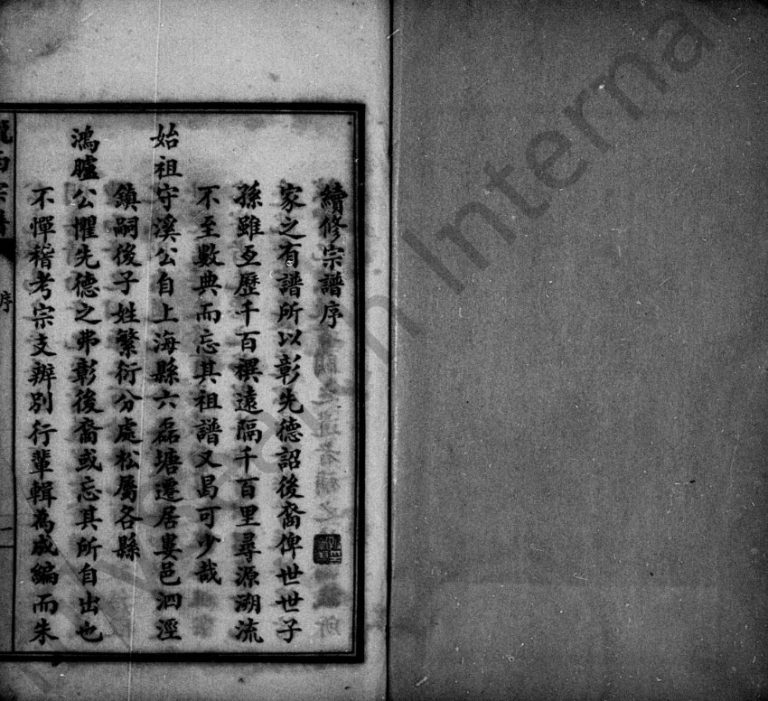 續修宗譜序
家之有譜所以彰先德詔後裔俾世世子
孫雖亙歷千百禩遠隔千百里尋源溯流
不至數典而忘其祖譜又曷可少哉
始祖守溪公自上海縣六磊塘遷居婁邑泗涇
鎮嗣後子姓繁衍分處松屬各縣
鴻臚公懼先德之弗彰後裔或忘其所自出也
不憚稽考宗支辨別行輩輯為成編而朱
隴西宗譜
序
一
Interna